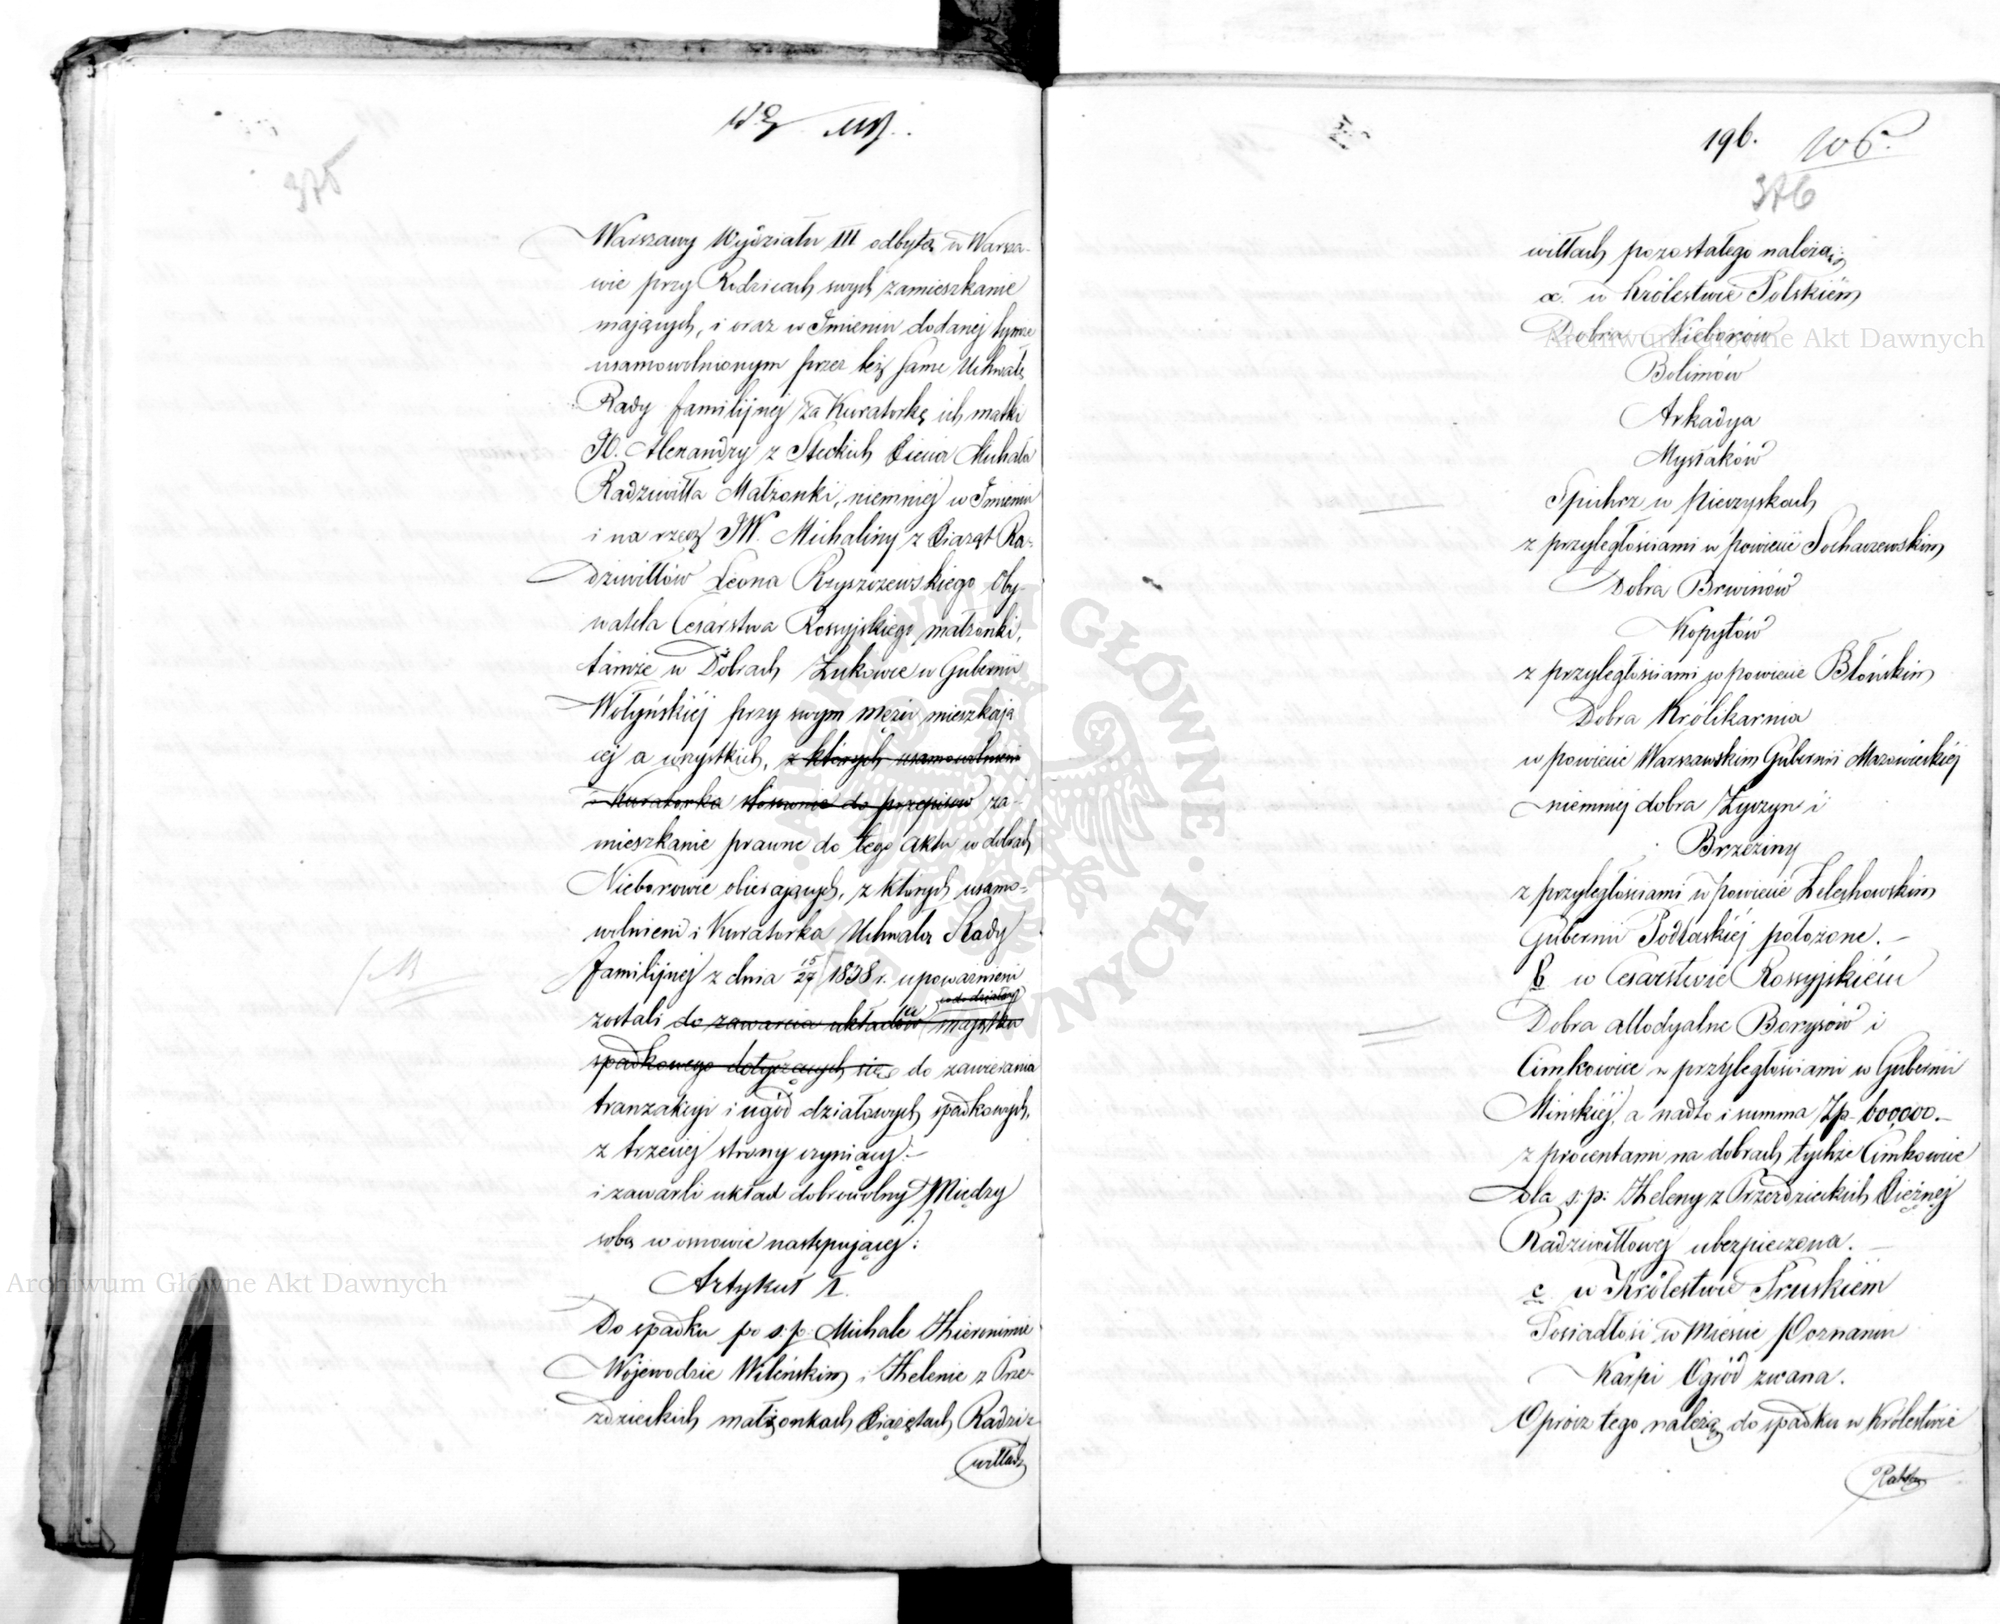 375
Warszawy Wydziału III odbytą w Warsza-
wie przy Rodzicach swych zamieszkanie
mających, i oraz w Imieniu dodanej tymże
usamowolnionym przez też same Uchwałę
Rady familijnej za Kuratorkę ich matki
JO. Alexandry z Steckich Xięcia Michała
Radziwiłła Małżonki, niemniej w Imieniu
i na rzecz JW. Michaliny z Xiążąt Ra-
dziwiłłów Leona Rzyszczewskiego Oby-
watela Cesarstwa Rossyjskiego małżonki,
tamże w Dobrach Zukowce w Gubernii
Wołyńskiéj przy swym mężu mieszkają
céj a wszystkich, z których usamowolnieni
i Kuratorka stosownie do przepisów za-
mieszkanie prawne do tego aktu w dobrach
Nieborowie obierających, z których usamo-
wolnieni i Kuratorka Uchwałą Rady
familijnej z dnia 15/27 1838 r. upoważnieni
zostali do zawarcia układów majątku
spadkowego dotyczących się do zawierania
tranzakcyi i ugód działowych spadkowych,
z trzeciej strony czyniący:-
i zawarli układ dobrowolny Między
sobą w osnowie następującej:
Artykuł 1.
Do spadku po s:p: Michale Hieronimie
Wojewodzie Wileńskim i Helenie z Prze-
zdzieckich małżonkach Xiążętach Radzi-
wiłłach
196. 106.
376
wiłłach pozostałego należą:
a. w Królestwie Polskiém
Dobra Nieborów
Bolimów
Arkadya
Mysłaków
Spichrz w Mieczyskach
z przyległościami w powiecie Sochaczewskim
Dobra Brwinów
Kopytów
z przyległościami w powiecie Błońskim
Dobra Królikarnia
w powiecie Warszawskim Gubernii Mazowieckiéj
niemniej dobra Zyczyn i
Brzeziny
z przyległościami w powiecie Zelechowskim
Gubernii Podlaskiéj położone.-
b w Cesarstwie Rossyjskiém
Dobra allodyalne Borysów i
Cimkowice z przyległościami w Gubernii
Mińskiéj, a nadto i summa Zp. 600,000.-
z procentami na dobrach tychże Cimkowice
dla s:p: Heleny z Przezdzieckich Xiężnéj
Radziwiłłowej ubezpieczona.-
c w Królestwie Pruskiém
Posiadłość w Mieście Poznaniu
Karpi Ogród zwana.
Oprócz tego należą do spadku w Królestwie
Archiwum Główne Akt Dawnych
Archiwum Główne Akt Dawnych
ARCHIWUM GŁÓWNE AKT DAWNYCH